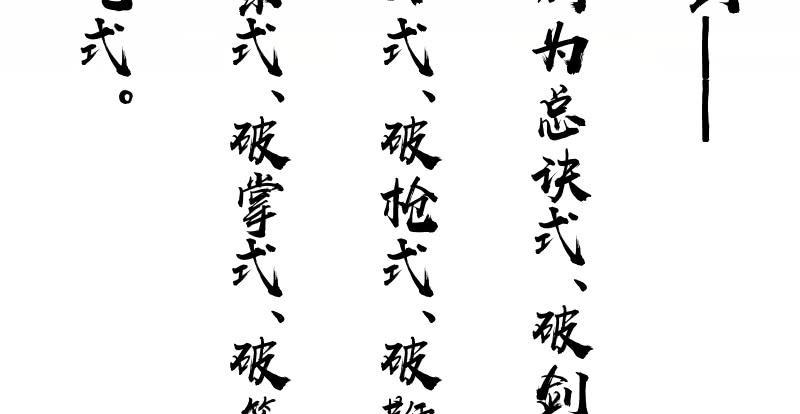 ——
为总诀式、破剑
式、破枪式、破
式、破掌式、破
式。